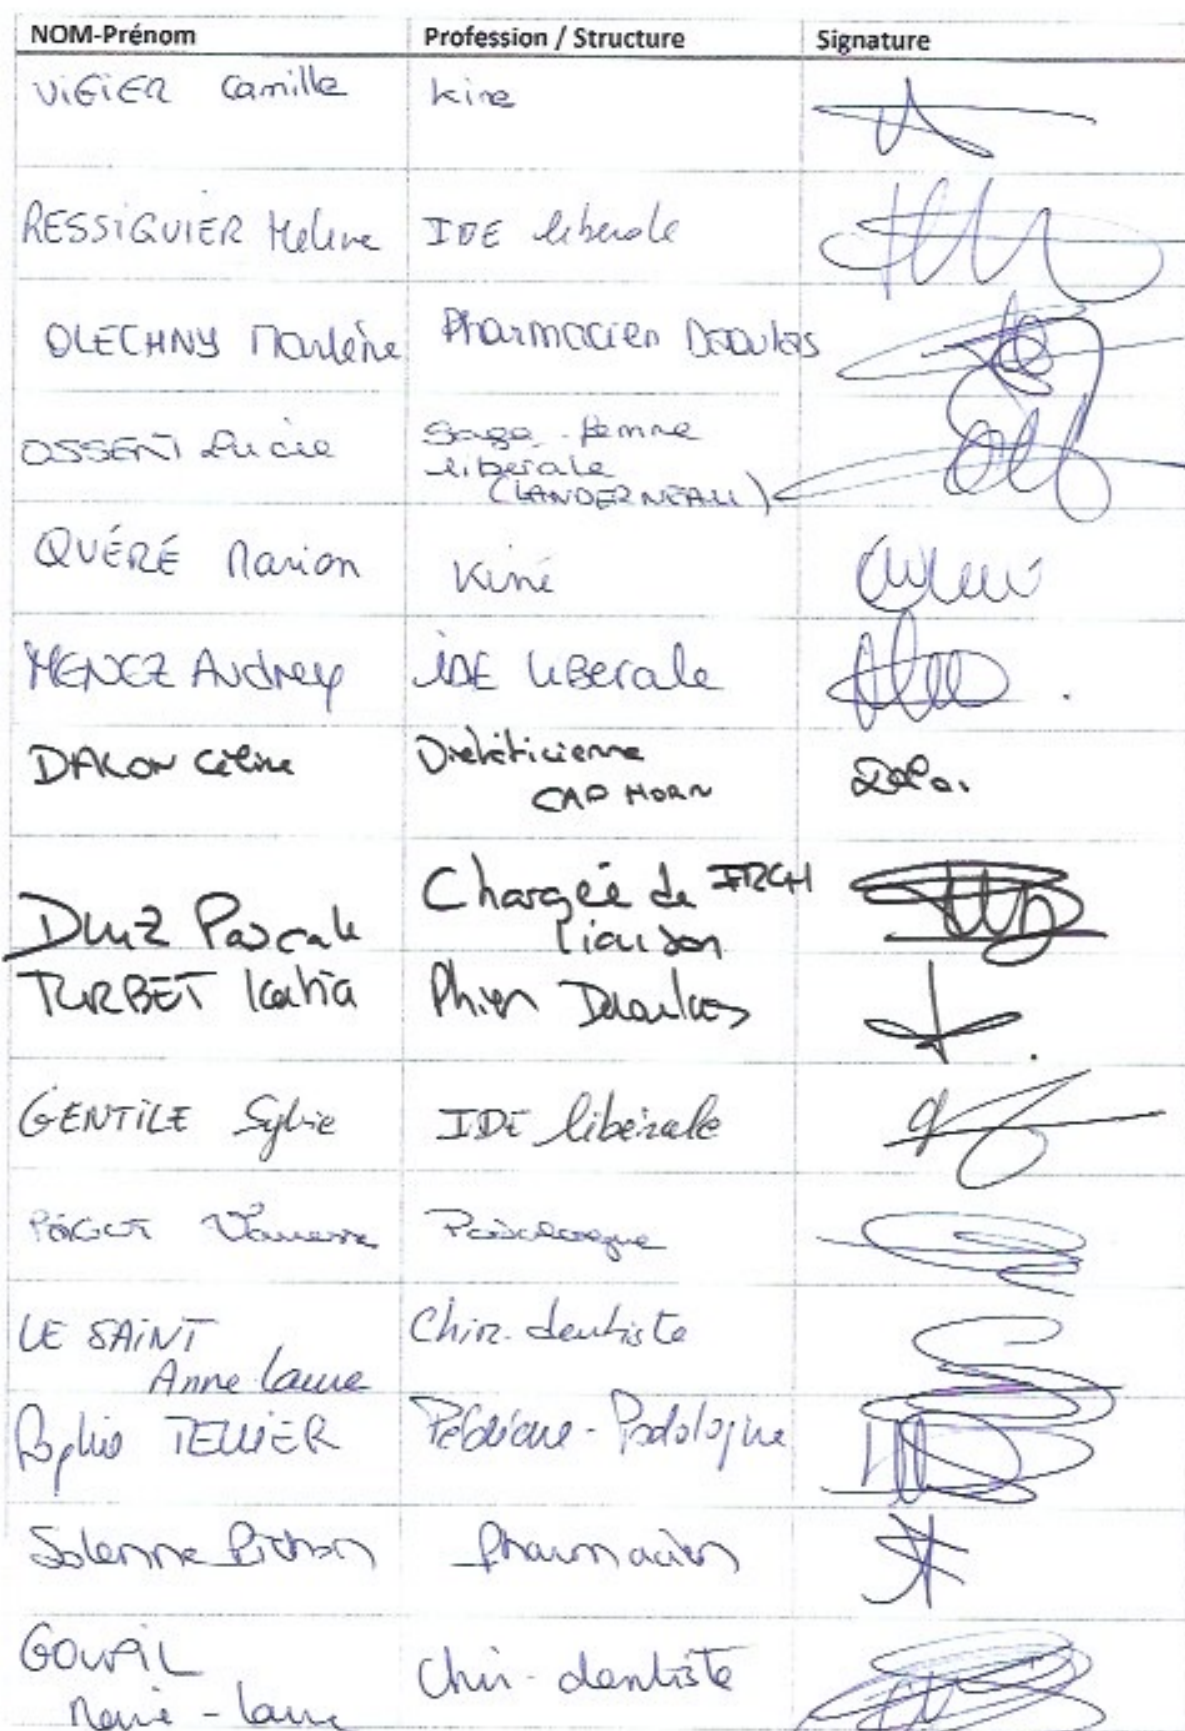 NOM-Prénom Profession / Structure Signature
ViGiER Camille Kine
RESSiGUiER Helene IDE liberale
OLECHNY Marlène Pharmacien Daoulas
OSSENT Lucie Sage-femme
libérale
(LANDERNEAU)
QUÉRÉ Marion Kiné
MENEZ Audrey iDE LiBerale
Céline Diététicienne
CAP HORN
Pascale Chargée de
liaison
TURBET Katia Phien Daoulas
GENTiLE Sylvie IDE libérale
Vanessa
LE SAiNT Chir-dentiste
Anne Laure
Sophie TELLiER Pédicure-Podologue
Solenne Pichon Pharmacien
GOUPiL Chir-dentiste
Marie-Laure